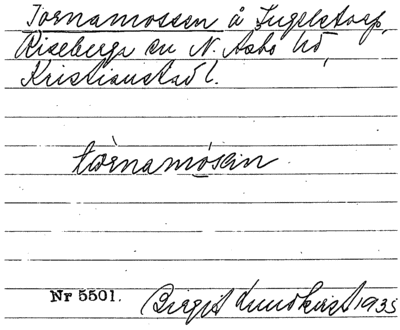 Tornamossen å Ingelstorp,
Riseberga sn N. Åsbo hd,
Kristianstad l.
tòrnamósen
Nr 5501.
Birgit Lundkvist 1935